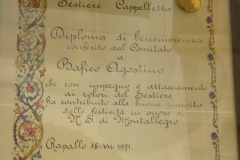 Sestiere Cappelletta
Diploma di benemerenza
conferito dal Comitato
a
Bafico Agostino
che con impegno e attaccamento
ai colori del Sestiere
ha contribuito alla buona riuscita
delle festività in onore di
N.S. di Montallegro
Rapallo 18·VII·1971